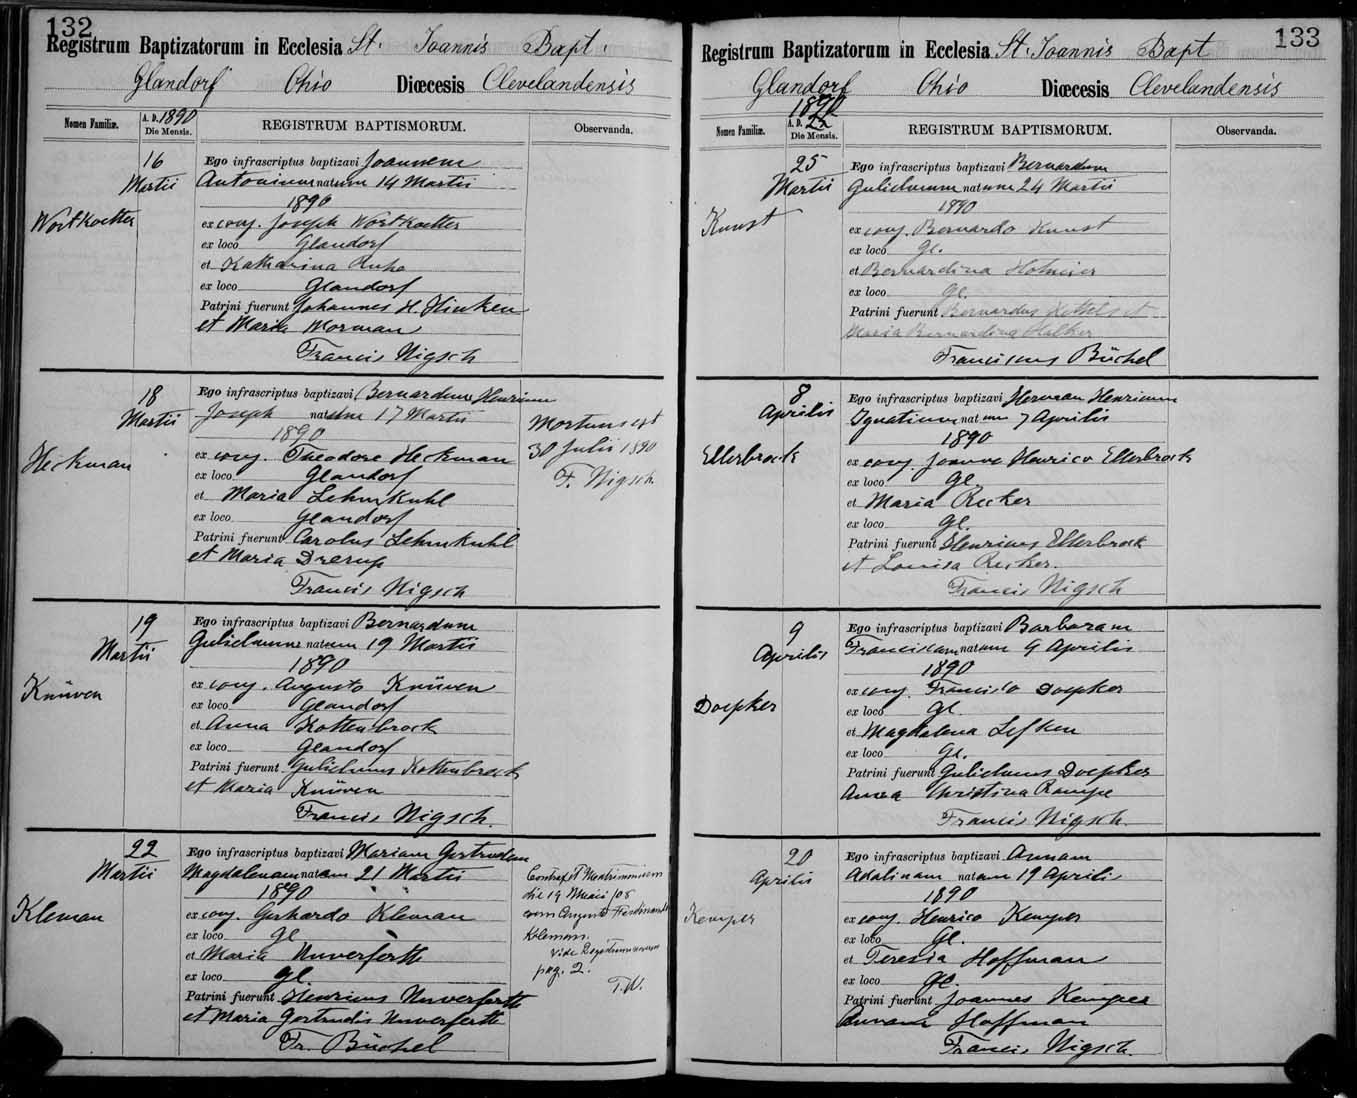 132
Registrum Baptizatorum in Ecclesia St. Joannis Bapt.
Glandorf Ohio Diœcesis Clevelandensis
Nomen Familiæ.
A. D. 1890
Die Mensis.
REGISTRUM BAPTISMORUM.
Observanda.
16
Martii
Wortkoetter
Ego infrascriptus baptizavi Joannem
Antonium natum 14 Martii
1890
ex conj. Joseph Wortkoetter
ex loco Glandorf
et Katharina
ex loco Glandorf
Patrini fuerunt Johannes H. Hinken
et Maria Morman
Francis Nigsch
18
Martii
Heckman
Ego infrascriptus baptizavi Bernardum Henricum
Joseph natum 17 Martii
1890
ex conj. Theodore Heckman
ex loco Glandorf
et Maria Lehmkuhl
ex loco Glandorf
Patrini fuerunt Carolus Lehmkuhl
et Maria Drerup
Francis Nigsch
Mortuus est
30 Julii 1890
F. Nigsch
19
Martii
Knüven
Ego infrascriptus baptizavi Bernardum
Gulielmum natum 19 Martii
1890
ex conj. Augusto Knüven
ex loco Glandorf
et Anna Kottenbrock
ex loco Glandorf
Patrini fuerunt Gulielmus Kottenbrock
et Maria Knüven
Francis Nigsch.
22
Martii
Kleman
Ego infrascriptus baptizavi Mariam Gertrudem
Magdalenam natam 21 Martii
1890
ex conj. Gerhardo Kleman
ex loco Gl
et Maria Unverferth
ex loco Gl.
Patrini fuerunt Henricus Unverferth
et Maria Gertrudis Unverferth
Fr. Büchel
Contraxit Matrimonium
die 19 Maii /08
cum Ferdinando
Kleman.
Vide
pag. 2.
T.W.
133
Registrum Baptizatorum in Ecclesia St. Joannis Bapt
Glandorf Ohio Diœcesis Clevelandensis
Nomen Familiæ.
1890
A. D.
Die Mensis.
REGISTRUM BAPTISMORUM.
Observanda.
25
Martii
Kunst
Ego infrascriptus baptizavi Bernardum
Gulielmum natum 24 Martii
1890
ex conj. Bernardo Kunst
ex loco Gl.
et Bernardina Hotmeier
ex loco Gl.
Patrini fuerunt Bernardus et
Maria Bernardina Halker
Franciscus Büchel
8
Aprilis
Ellerbrock
Ego infrascriptus baptizavi Herman Henricum
Ignatium natum 7 Aprilis
1890
ex conj. Joanne Henrico Ellerbrock
ex loco Gl.
et Maria Recker
ex loco Gl.
Patrini fuerunt Henricus Ellerbrock
et Louisa Recker.
Francis Nigsch
9
Aprilis
Doepker
Ego infrascriptus baptizavi Barbaram
Franciscam natam 9 Aprilis
1890
ex conj. Francisco Doepker
ex loco Gl.
et Magdalena Lefken
ex loco Gl.
Patrini fuerunt Gulielmus Doepker
Anna Christina Rampe
Francis Nigsch.
20
Aprilis
Kemper
Ego infrascriptus baptizavi Annam
Adalinam natam 19 Aprilis
1890
ex conj. Henrico Kemper
ex loco Gl.
et Teresia Hoffman
ex loco Gl.
Patrini fuerunt Joannes Kemper
Hoffman
Francis Nigsch.